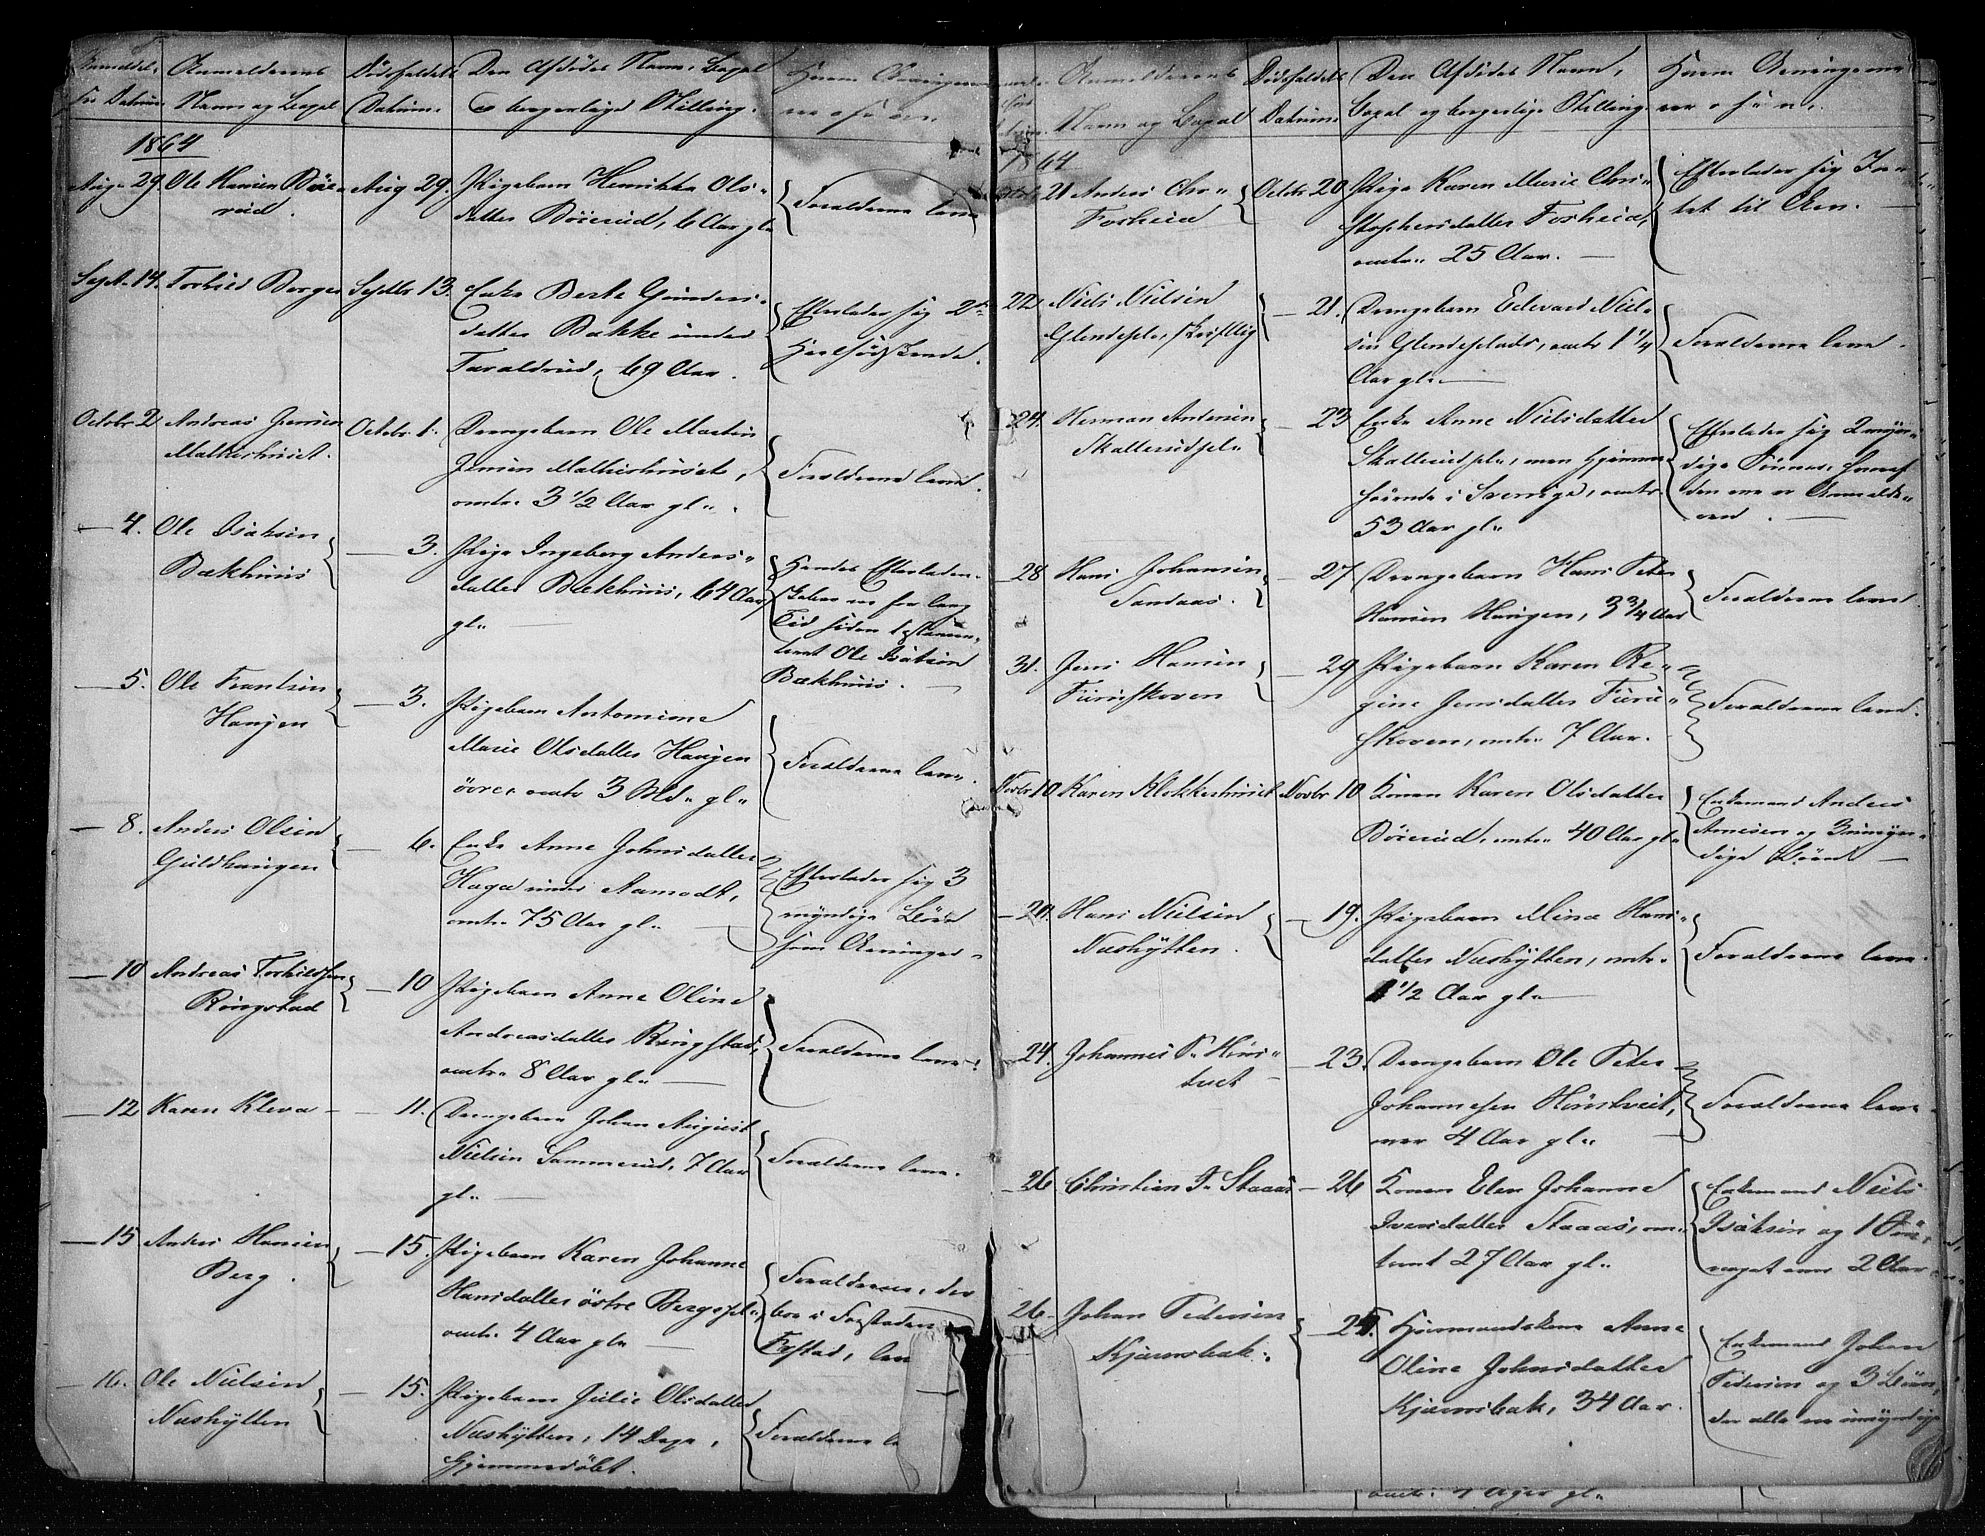 Anmeldel-
sens Datum
Anmelderens
Navn og Bopæl
Dødsfaldets
Datum.
Den Afdødes Navn, Bopæl
og borgerlige Stilling.
Hvem Arvingerne
1864
Aug. 29.
Ole Hansen Böie-
rud.
Aug 29.
Pigebarn Henrikka Ols-
datter Böierud, 6 Aar gl.
Forældrene leve
Sept. 14.
Torkild Berger
Septbr 13.
Enke Berte Gunders-
datter Bakke under
Taraldrud, 69 Aar.
Efterlader sig 2de
Octobr 2
Andreas Jensen
Malkerhuset.
Octobr. 1.
Drengebarn Ole Martin
Jensen Malkerhuset,
omtr. 3 1/2 Aar gl.
Forældrene leve.
— 4.
Ole Isaksen
Bækhuus
— 3.
Pige Ingeborg Anders-
datter Bækhuus, 64 Aar
gl.
Hendes Efterladen-
skaber er for lang
Tid siden testamen-
teret Ole Isaksen
Bækhuus.
— 5.
Ole Frantsen
Haugen
— 3.
Pigebarn Antomine
Marie Olsdatter Haugen
övre, omtr 3 Md. gl.
Forældrene leve.
— 8.
Anders Olsen
Guldhaugen
— 6.
Enke Anne Johnsdatter
Haga under Aamodt,
omtr. 75 Aar gl.
Efterlader sig 3
myndige Börn
som Arvinger.
— 10
Andreas Torkildsen
Ringstad
— 10
Pigebarn Anne Oline
Andreasdatter Ringstad,
omtr. 8 Aar gl.
Forældrene leve.
— 12
Karen Kleva —
— 11.
Drengebarn Johan August
Nielsen Sammerud, 7 Aar
gl.
Forældrene leve.
— 15
Anders Hansen
Berg.
— 15.
Pigebarn Karen Johanne
Hansdatter östre Bergspl.,
omtr. 4 Aar gl.
Forældrene, der
boe i
— 16.
Ole Nielsen
Næshytten
— 15.
Pigebarn Julie Olsdatter
Næshytten, 14 Dage,
hjemmedöbt.
Forældrene
Anmelderens
Navn og Bopæl
Dødsfaldets
Datum
Den Afdødes Navn,
Bopæl og borgerlige Stilling
Hvem Arvingerne
1864
21
Anders Chr.
Forheia
Octbr 20
Pige Karen Marie Chri-
stophersdatter Forheia,
omtr. 25 Aar. —
Efterlader sig In-
tet til Arv. —
22
Niels Nielsen
Glendepl., skriftlig
— 21.
Drengebarn Edevard Niel-
sen Glendeplads, omtr 1 1/4
Aar gl. —
Forældrene leve.
24.
Herman Andersen
Skallerudspl.
— 23
Enke Anne Nielsdatter
Skallerudspl., men hjemme-
hörende i Sverrige, omtr.
53 Aar gl.
Efterlader sig 2 myn-
dige Sönner, hvoraf
den ene er Anmelde-
ren. —
28
Hans Johansen
Sandaas.
— 27
Drengebarn Hans Peter
Hansen Haugen, 3 3/4 Aar
Forældrene leve.
31.
Jens Hansen
Furuskoven
— 29
Pigebarn Karen Re-
gine Jensdatter Furu-
skoven, omtr. 7 Aar.
Forældrene leve.
Novbr 10
Karen Klokkerhuset
Novbr 10
Konen Karen Olsdatter
Böierud, omtr. 40 Aar gl.
Enkemand Anders
Arnesen og 3 umyn-
dige Börn —
— 20.
Hans Nielsen
Næshytten.
— 19.
Pigebarn Mina Hans-
datter Næshytten, omtr.
1 1/2 Aar gl. —
Forældrene leve.
— 24.
Johannes P. Hins-
tvet
— 23.
Drengebarn Ole Peter
Johannesen Hönstveit,
over 4 Aar gl.
Forældrene leve
— 26
Christian I. Staaas
— 26
Konen Elen Johanne
Iversdatter Staaas, om-
trent 27 Aar gl.
Enkemand Niels
Isaksen og 1 Sön,
noget over 2 Aar
26.
Johan Pedersen
Kjærnsbak.
— 25.
Huusmandskone Anne
Oline Johnsdatter
Kjærnsbak, 34 Aar.
Enkemand Johan
Pedersen og 3 Börn,
der alle er umyndige